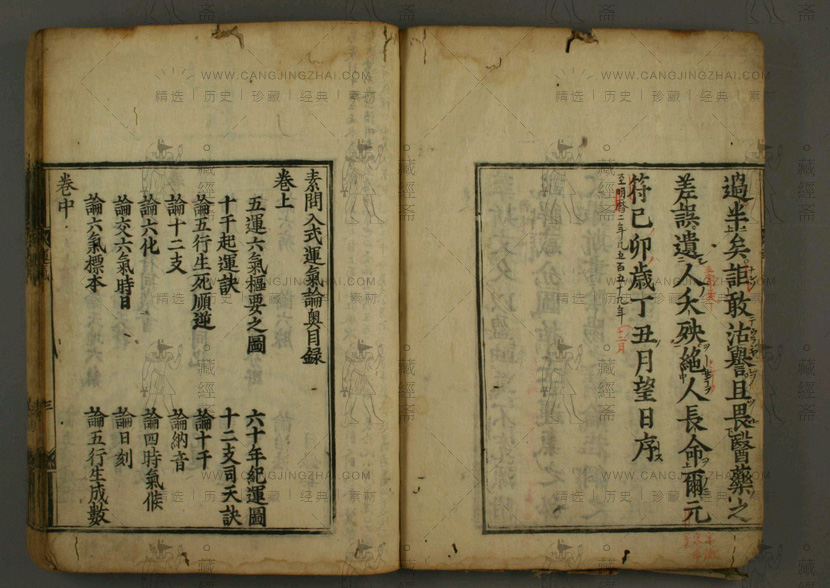 過半矣詎敢沽譽且畏醫藥之
差誤遺人夭殃絶人長命爾元
符己卯歲丁丑月望日序
至明曆二年凡五百五十九年
素問入式運氣論奧目録
卷上
五運六氣樞要之圖 六十年紀運圖
十千起運訣 十二支司天訣
論五行生死順逆 論十千
論十二支 論納音
論六化 論四時氣候
論交六氣時日 論日刻
論六氣標本 論五行生成數
卷中
WWW.CANGJINGZHAI.COM
精选 | 历史 | 珍藏 | 经典 | 素材
藏經斋